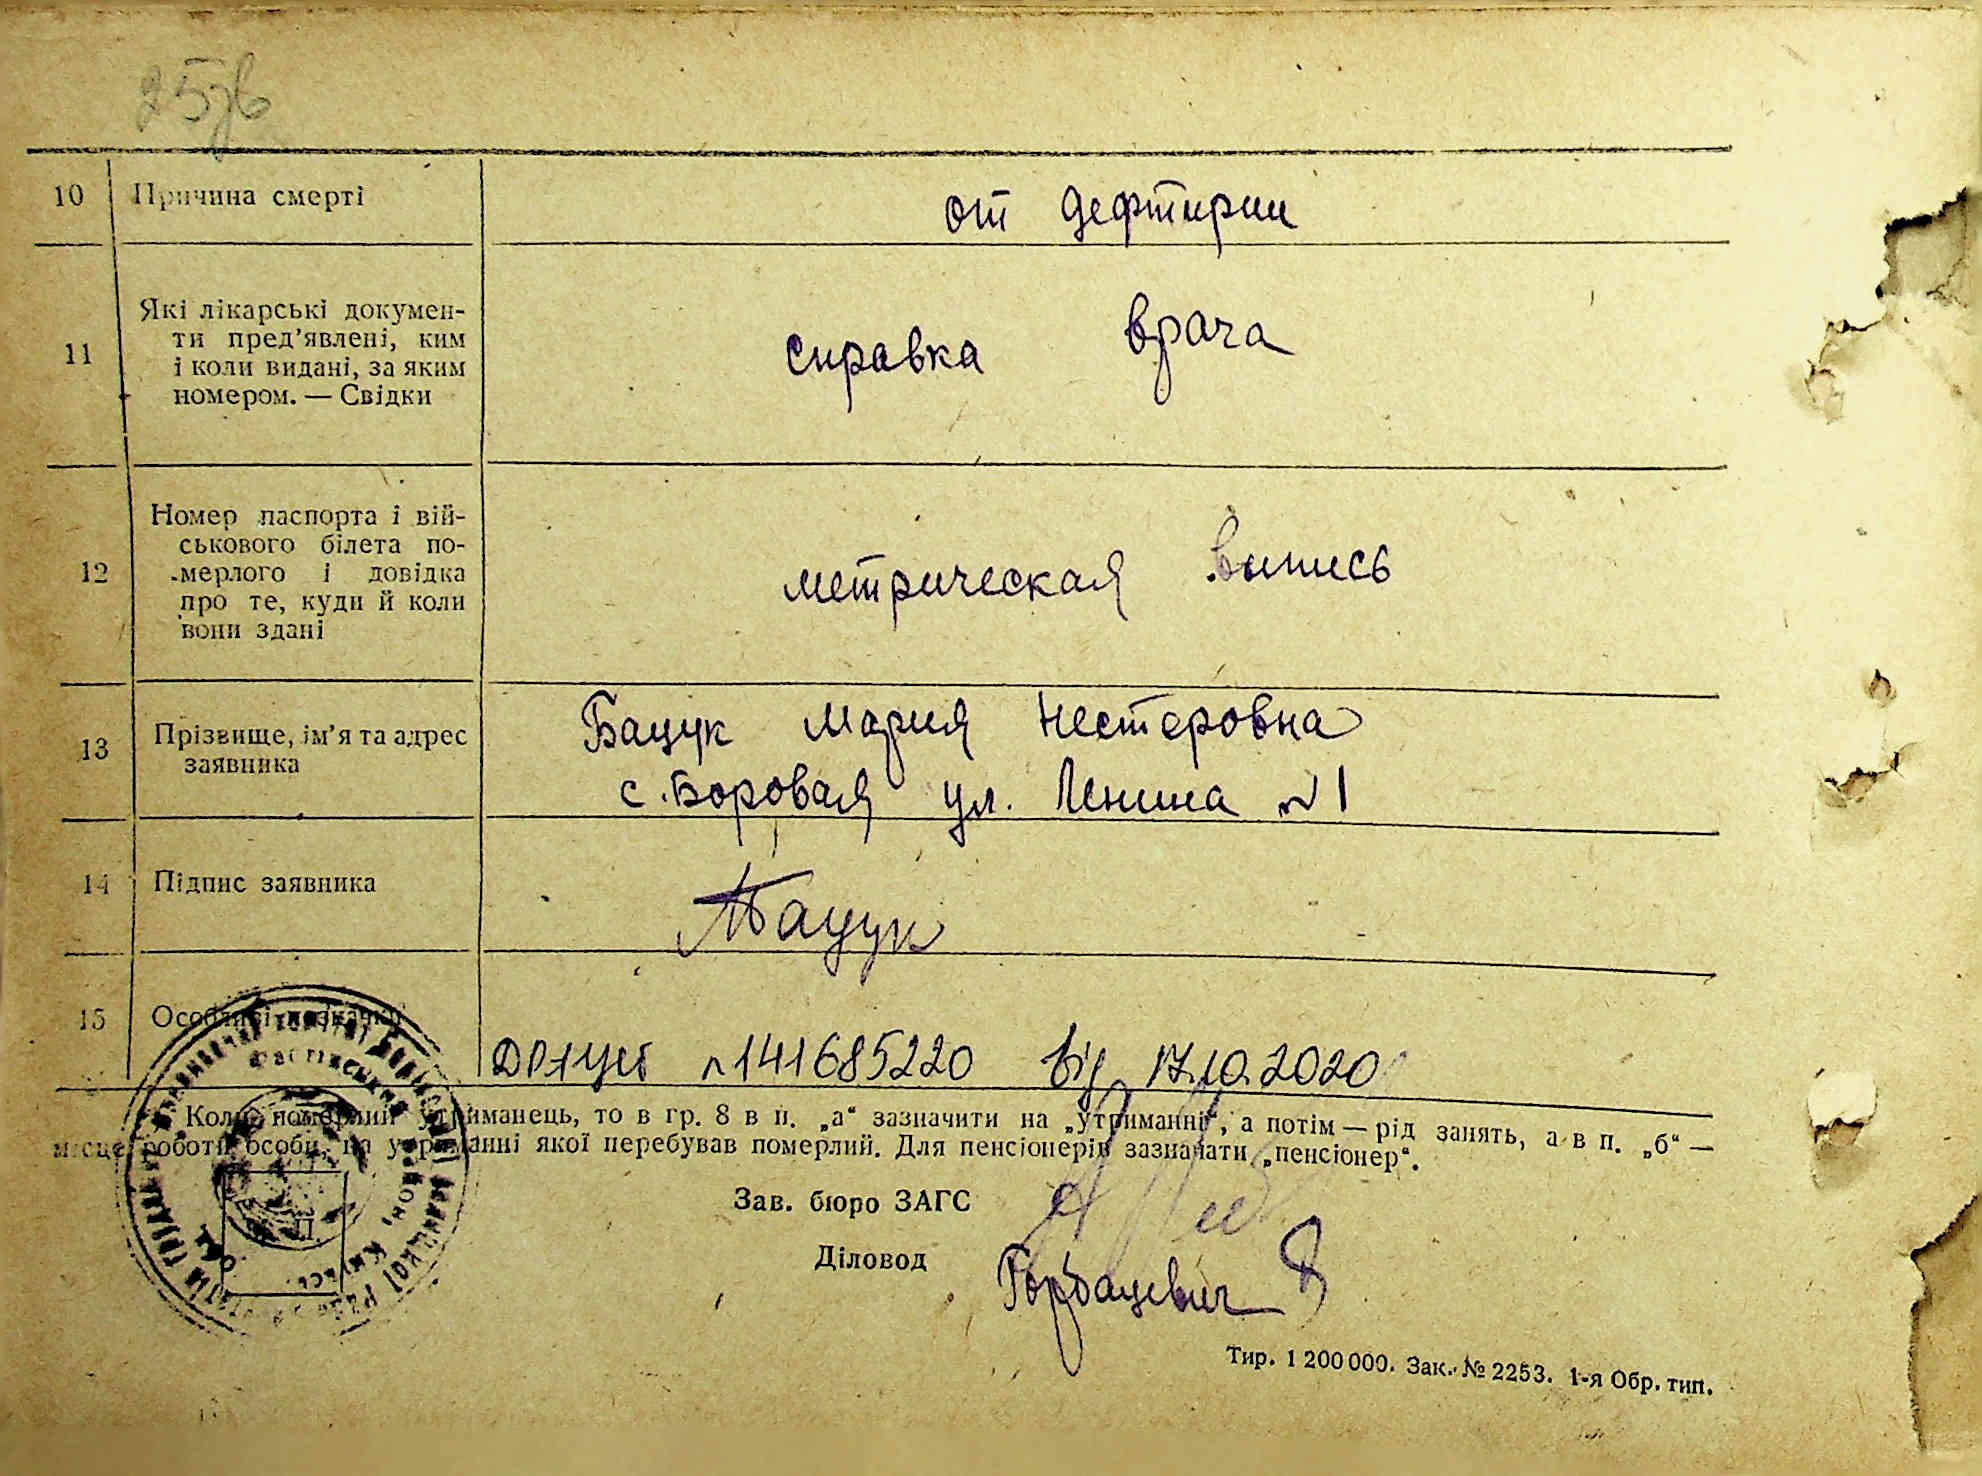 10 Причина смерті
от дефтирии
11 Які лікарські докумен-
ти пред’явлені, ким
і коли видані, за яким
номером. — Свідки
справка врача
12 Номер паспорта і вій-
ськового білета по-
мерлого і довідка
про те, куди й коли
вони здані
метрическая выпись
13 Прізвище, ім’я та адрес
заявника
Бацук Мария Нестеровна
с. Боровая ул. Ленина № 1
14 Підпис заявника
Бацук
15 Особливі
ДРАЦСГ №141685220 від 17.10.2020
Коли померлий утриманець, то в гр. 8 в п. „а“ зазначити на „утриманні“, а потім — рід занять, а в п. „б“ —
місце роботи особи, на утриманні якої перебував померлий. Для пенсіонерів зазначати „пенсіонер“.
Зав. бюро ЗАГС
Діловод Горбацевич
Тир. 1 200 000. Зак. № 2253. 1-я Обр. тип.